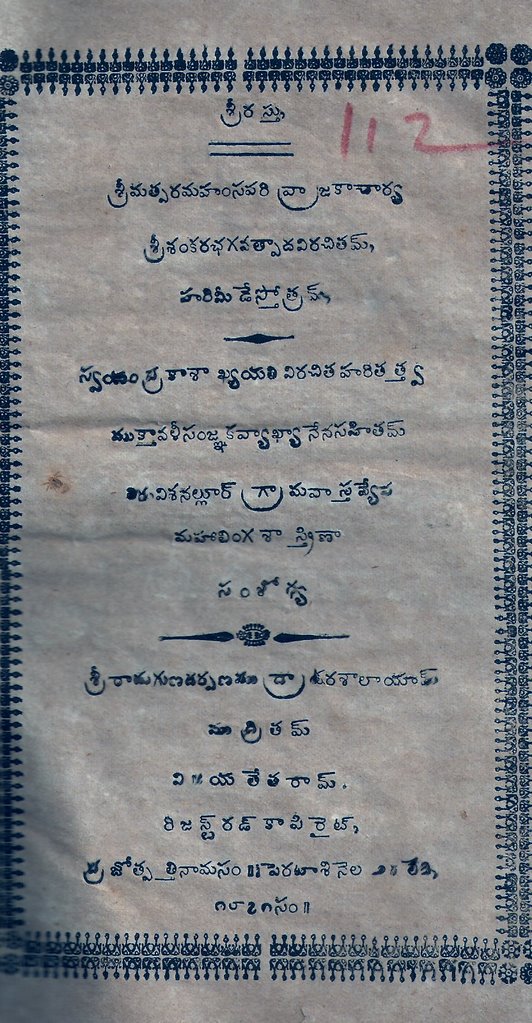 శ్రీరస్తు,
112
శ్రీమత్పరమహంసపరివ్రాజకాచార్య
శ్రీశంకరభగవత్పాదవిరచితమ్,
హరిమీడేస్తోత్రమ్,
స్వయంప్రకాశాఖ్యయతివిరచితహరితత్త్వ
ముక్తావళీసంజ్ఞకవ్యాఖ్యానేనసహితమ్
విశనల్లూర్ గ్రామవాస్తవ్యేన
మహాలింగశాస్త్రిణా
సంశోధ్య
శ్రీరామగుణదర్పణముద్రాక్షరశాలాయామ్
ముద్రితమ్
విజయతేతరామ్.
రిజస్ట్రడ్ కాపిరైట్,
ప్రజోత్పత్తినామసం॥పెరటాశినెల
సం॥